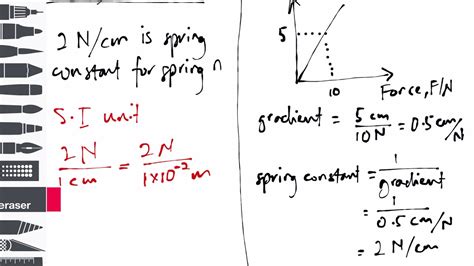 2 N/cm is spring
constant for spring n
S.I unit
2N/1cm = 2N/1×10⁻² m
5
10
Force, F/N
gradient = 5 cm/10N = 0.5 cm/N
spring constant = 1/gradient
= 1/0.5 cm/N
= 2 N/cm
eraser